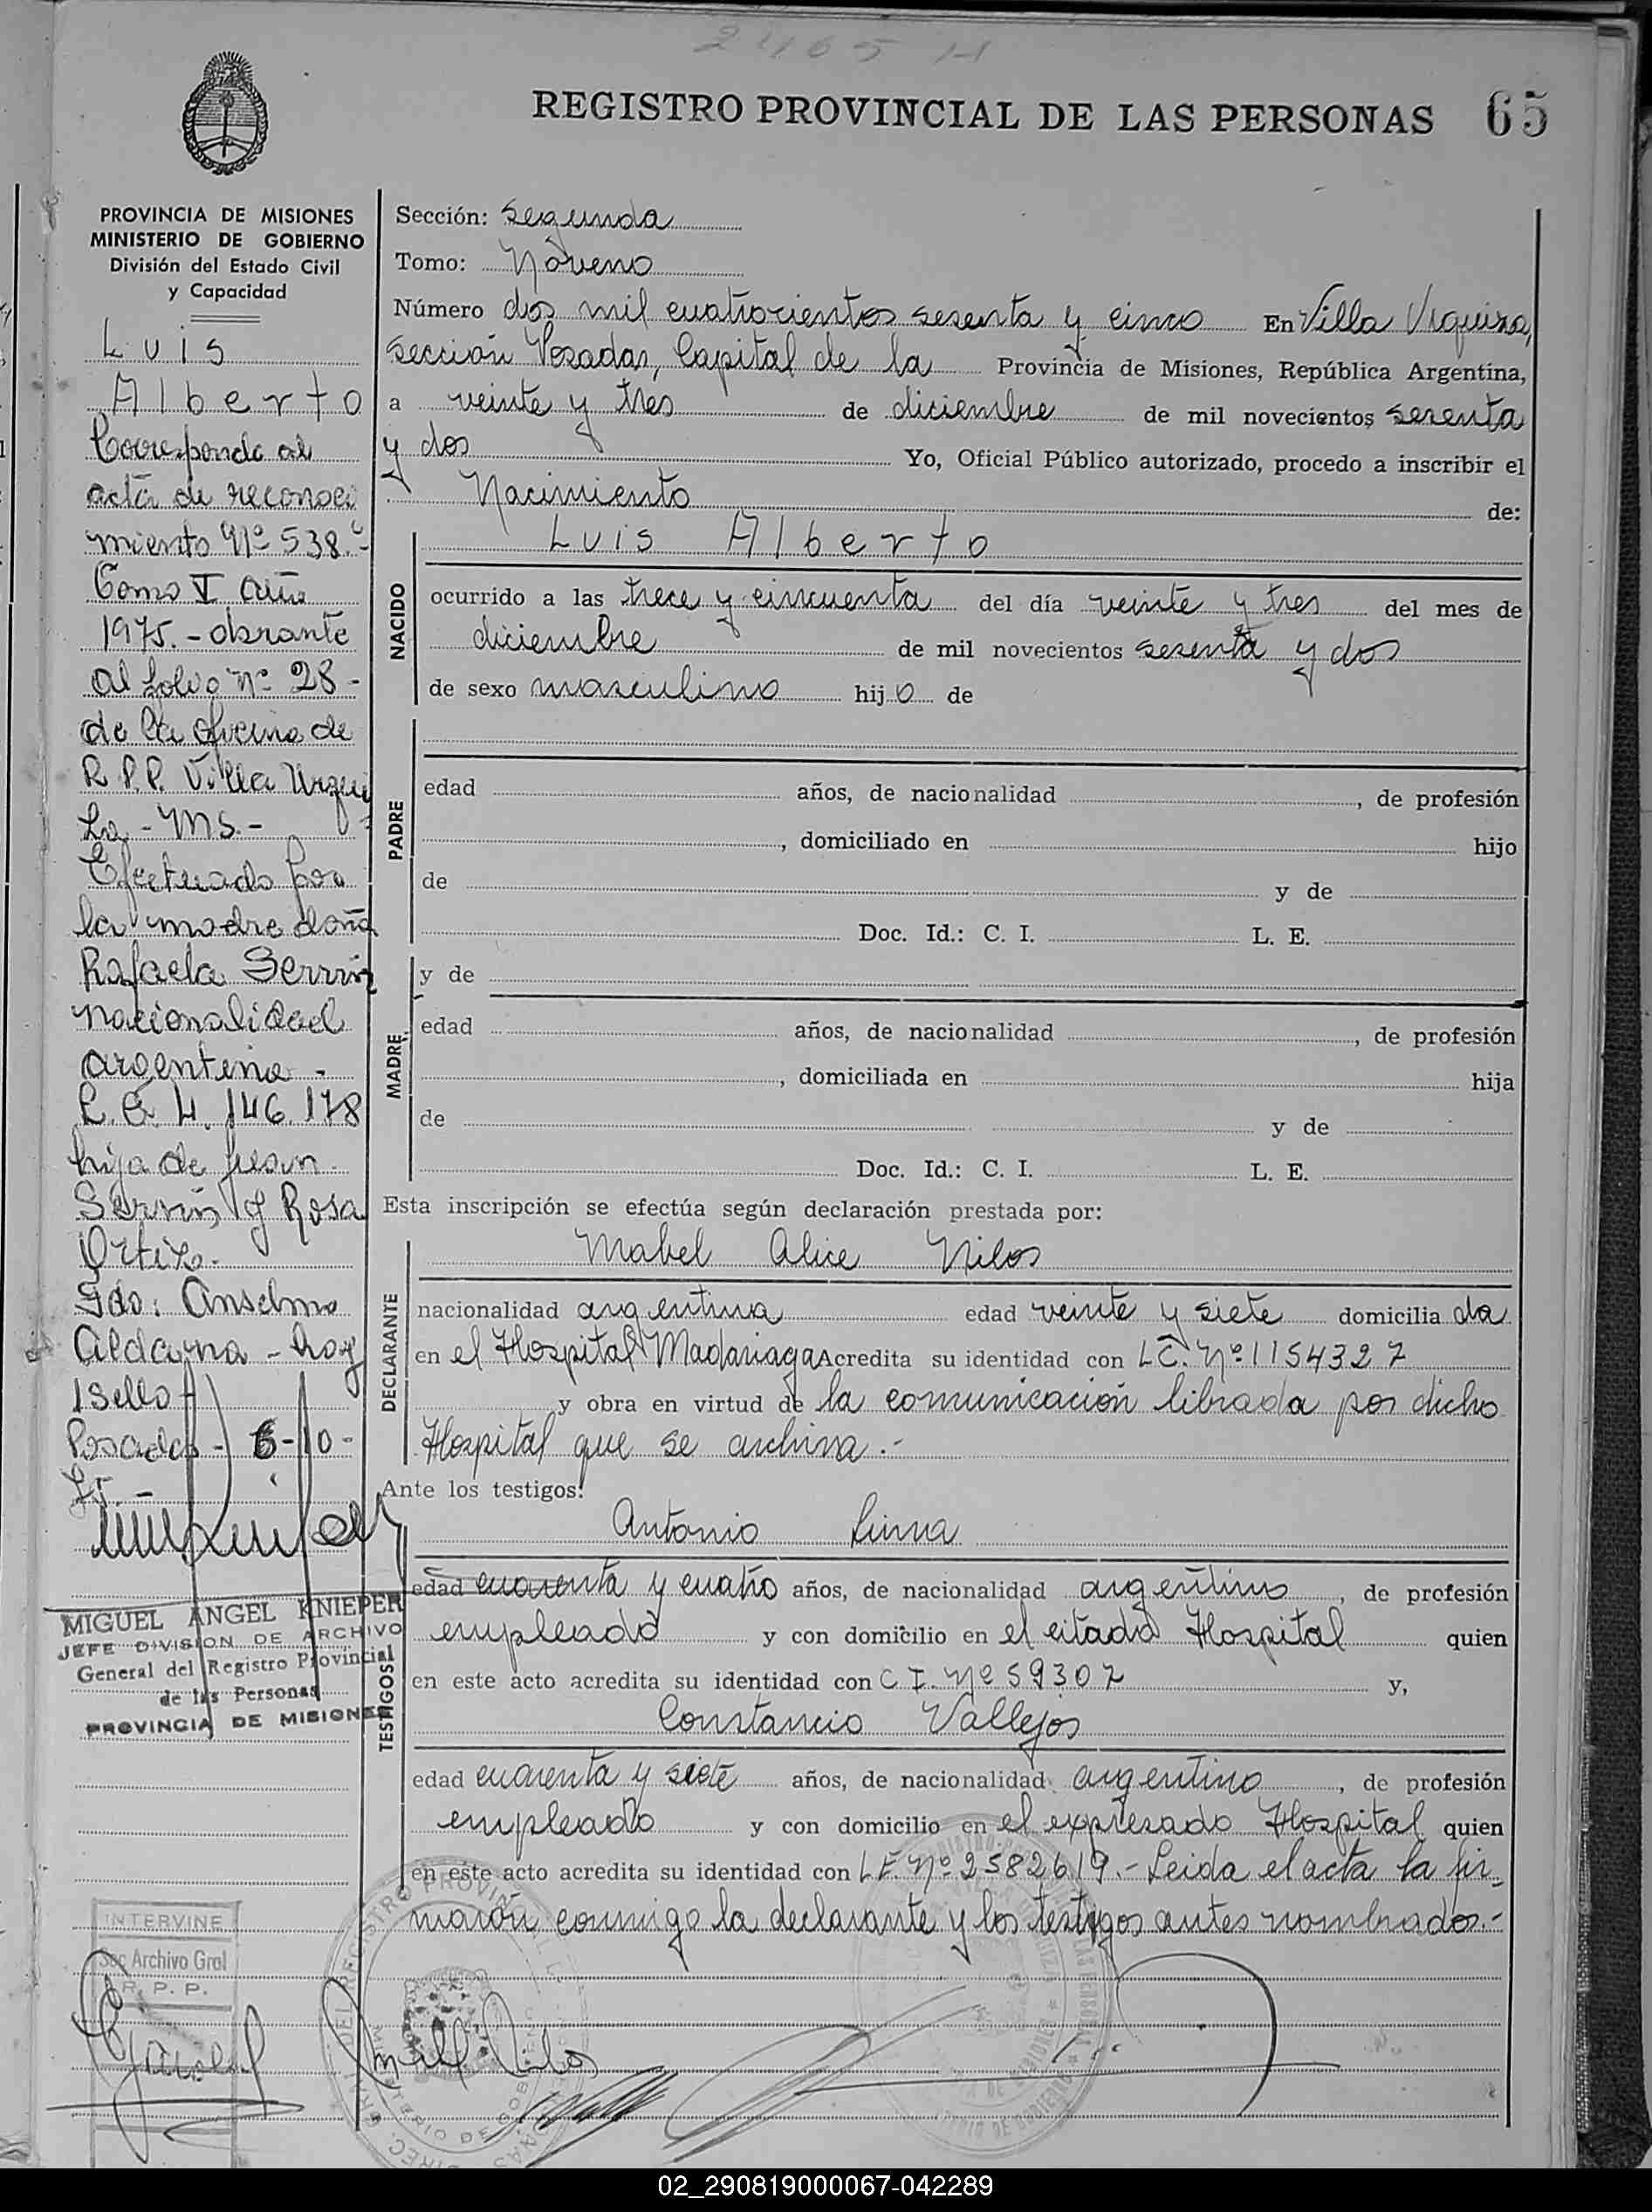 2465 H
REGISTRO PROVINCIAL DE LAS PERSONAS 65
PROVINCIA DE MISIONES
MINISTERIO DE GOBIERNO
División del Estado Civil
y Capacidad
Luis
Alberto
Corresponde al
acta de reconoci
miento Nº 538.-
Tomo V Año
1975.- obrante
al folio nº 28-
de la oficina de
R.P.P. Villa Urqui
za - Ms.-
Efectuado por
la madre doña
Rafaela Servin
nacionalidad
argentina -
L.C. 4.146.178
hija de Juan
Servin y Rosa
Ortiz.
Fdo: Anselmo
Aldayna - hay
1 Sello
Posadas - 6-10-
75.-
MIGUEL ANGEL KNIEPER
JEFE DIVISION DE ARCHIVO
General del Registro Provincial
de las Personas
PROVINCIA DE MISIONES
INTERVINE
Sec Archivo Gral
R. P. P.
Sección: Segunda
Tomo: Noveno
Número dos mil cuatrocientos sesenta y cinco En Villa Urquiza,
sección Posadas, Capital de la Provincia de Misiones, República Argentina,
a veinte y tres de diciembre de mil novecientos sesenta
y dos Yo, Oficial Público autorizado, procedo a inscribir el
Nacimiento de:
NACIDO
Luis Alberto
ocurrido a las trece y cincuenta del día veinte y tres del mes de
diciembre de mil novecientos sesenta y dos
de sexo masculino hijo de
PADRE
edad años, de nacionalidad , de profesión
, domiciliado en hijo
de y de
Doc. Id.: C. I. L. E.
MADRE
y de
edad años, de nacionalidad , de profesión
, domiciliada en hija
de y de
Doc. Id.: C. I. L. E.
Esta inscripción se efectúa según declaración prestada por:
DECLARANTE
Mabel Alice Nilos
nacionalidad argentina edad veinte y siete domiciliada
en el Hospital Madariaga Acredita su identidad con L.C. Nº 1154327
y obra en virtud de la comunicación librada por dicho
Hospital que se archiva.-
Ante los testigos:
TESTIGOS
Antonio Lima
edad cuarenta y cuatro años, de nacionalidad argentino, de profesión
empleado y con domicilio en el citado Hospital quien
en este acto acredita su identidad con C I. Nº 59307 y,
Constancio Vallejos
edad cuarenta y siete años, de nacionalidad argentino, de profesión
empleado y con domicilio en el expresado Hospital quien
en este acto acredita su identidad con L.E. Nº 2582619.- Leida el acta la fir
maron conmigo la declarante y los testigos antes nombrados.-
02_290819000067-042289